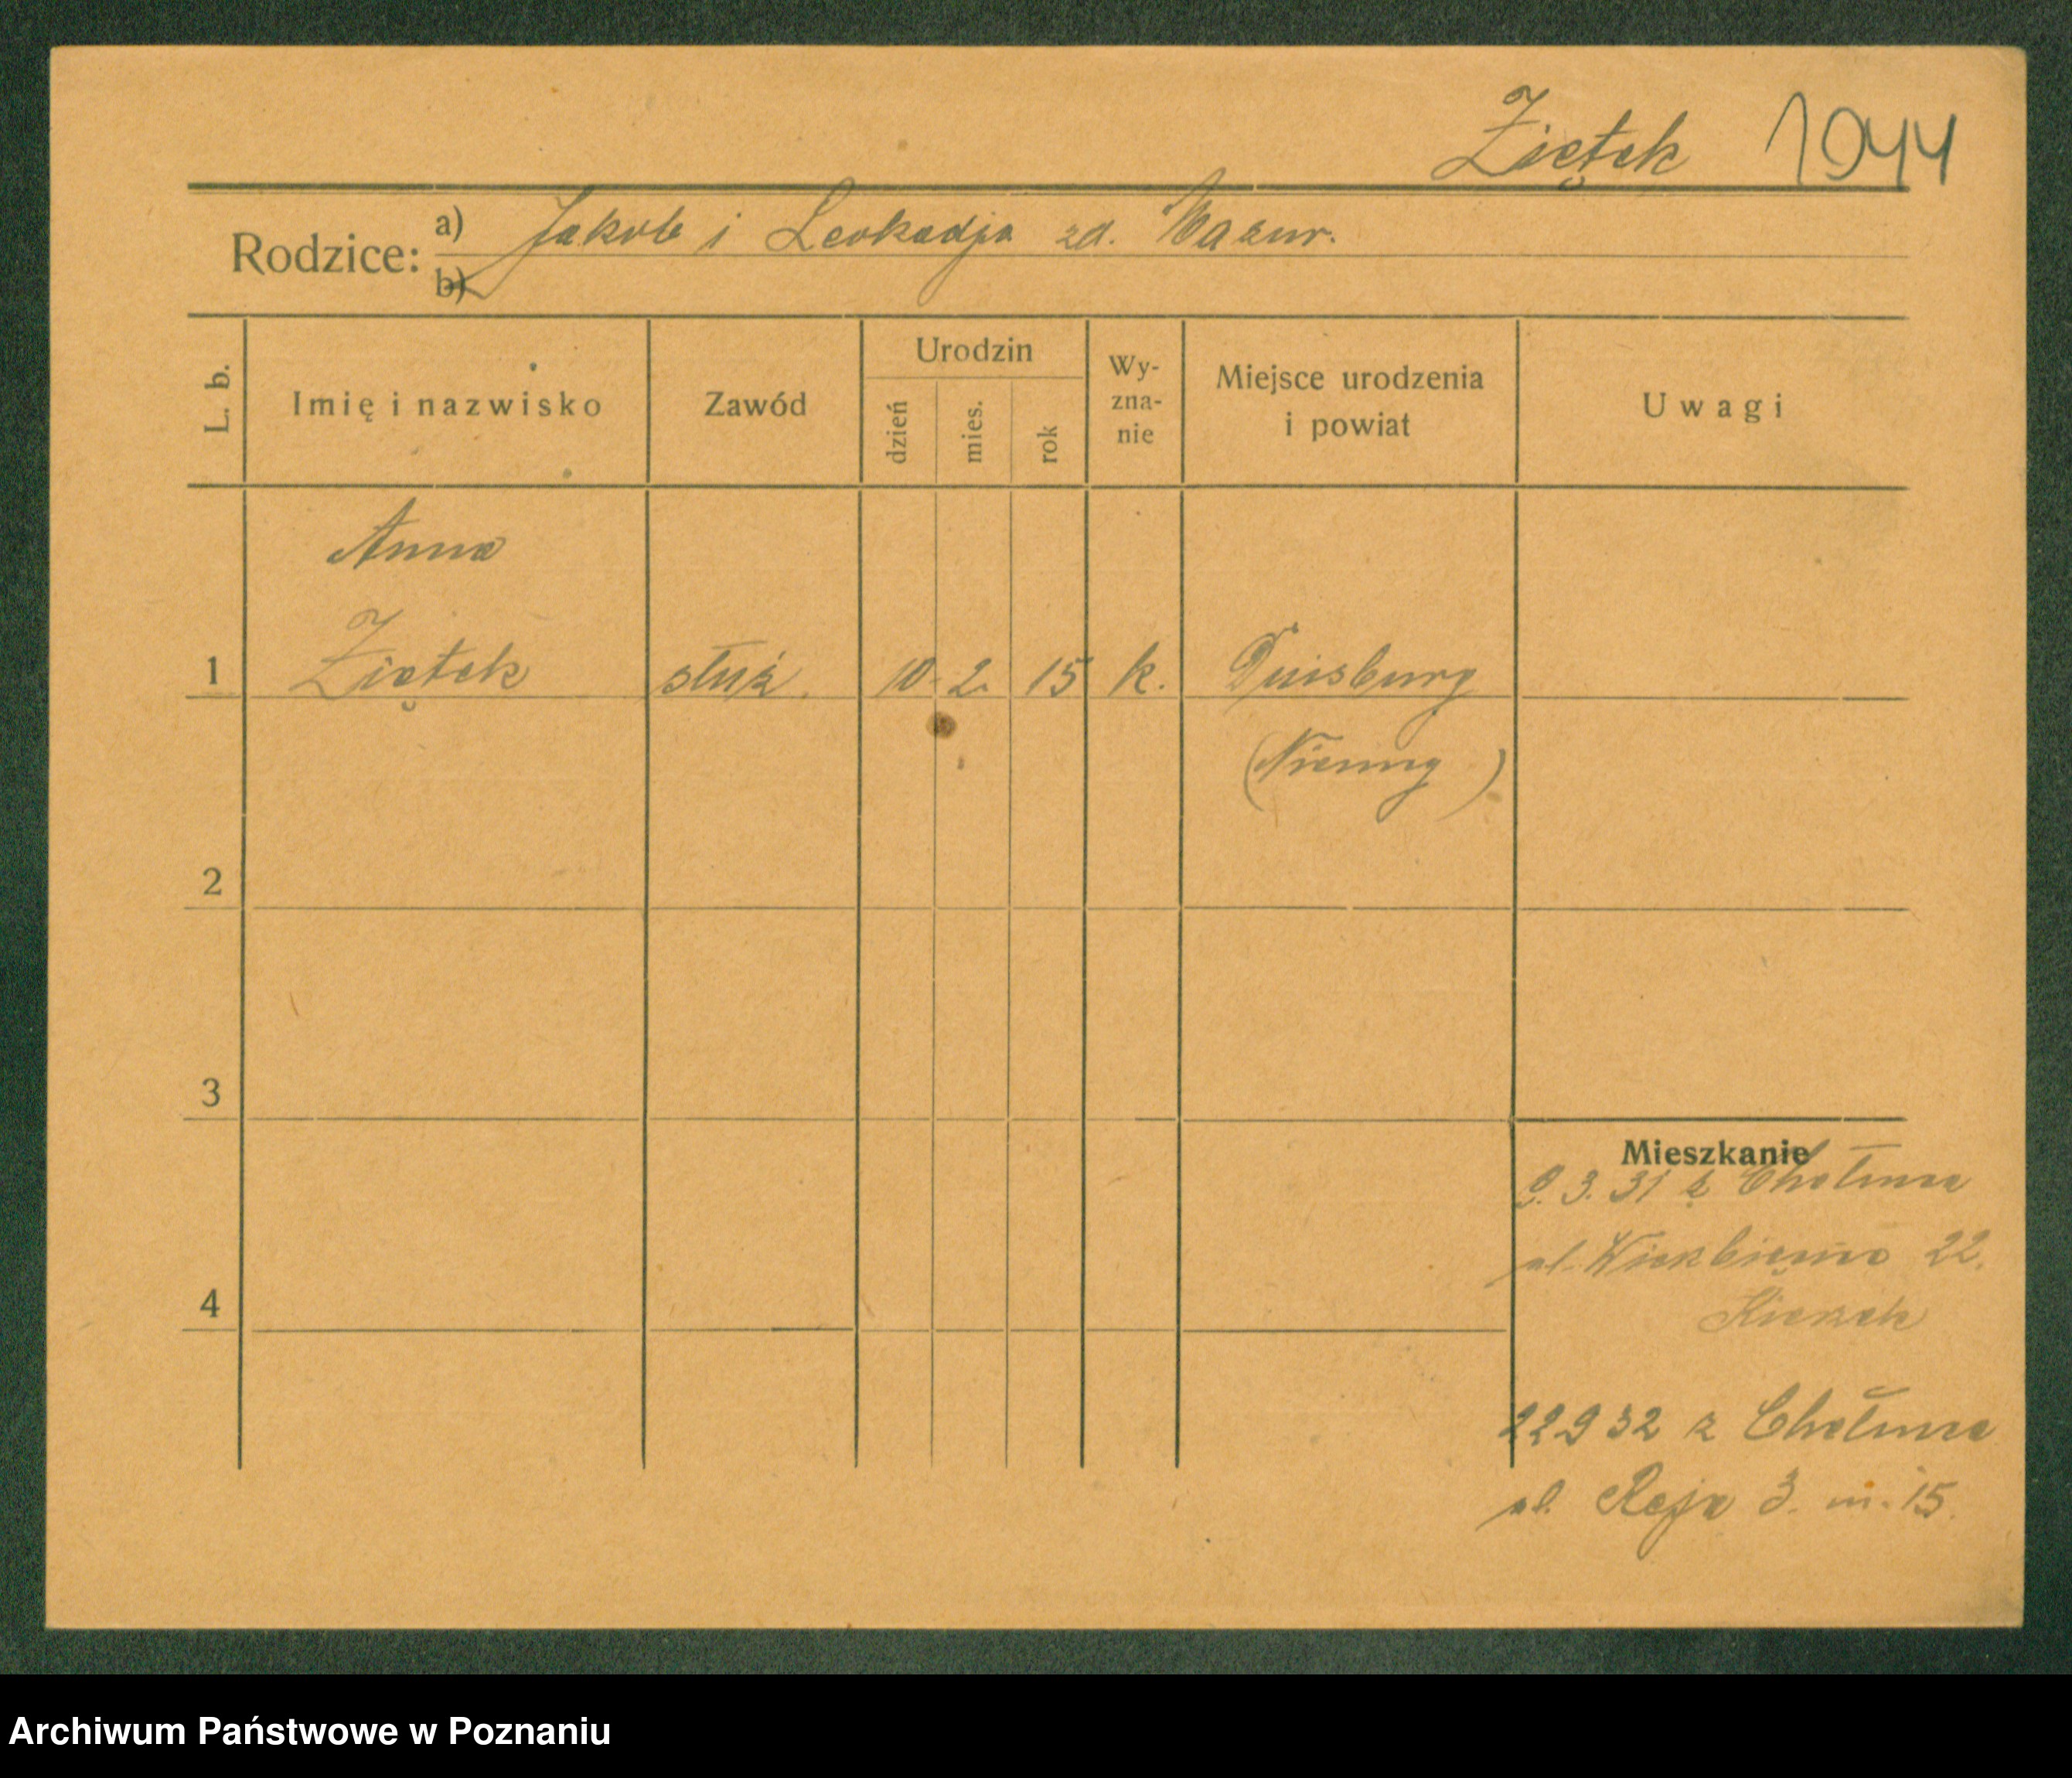 Ziętek 1944
Rodzice: a) Jakób i Leokadja zd. Mazur.
b)
L. b. Imię i nazwisko Zawód Urodzin dzień mies. rok Wy-zna-nie Miejsce urodzenia i powiat Uwagi
Anna
1 Ziętek służ. 10. 2. 15 k. Duisburg
(Niemcy)
2
3
Mieszkanie
9. 3. 31 z Chełmna
ul. Wierzbięcice 22.
4
22 9 32 z Chełmna
ul. Reja 3. m. 15.
Archiwum Państwowe w Poznaniu